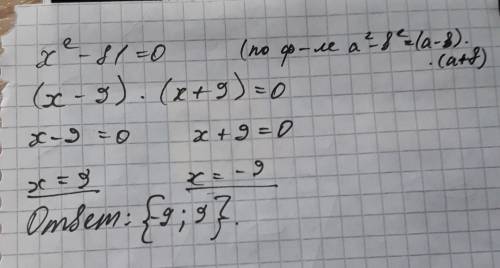 x² - 81 = 0 (по ф-ле a² - b² = (a - b) ·
· (a + b)
(x - 9) · (x + 9) = 0
x - 9 = 0 x + 9 = 0
x = 9 x = -9
Ответ: {-9; 9}.